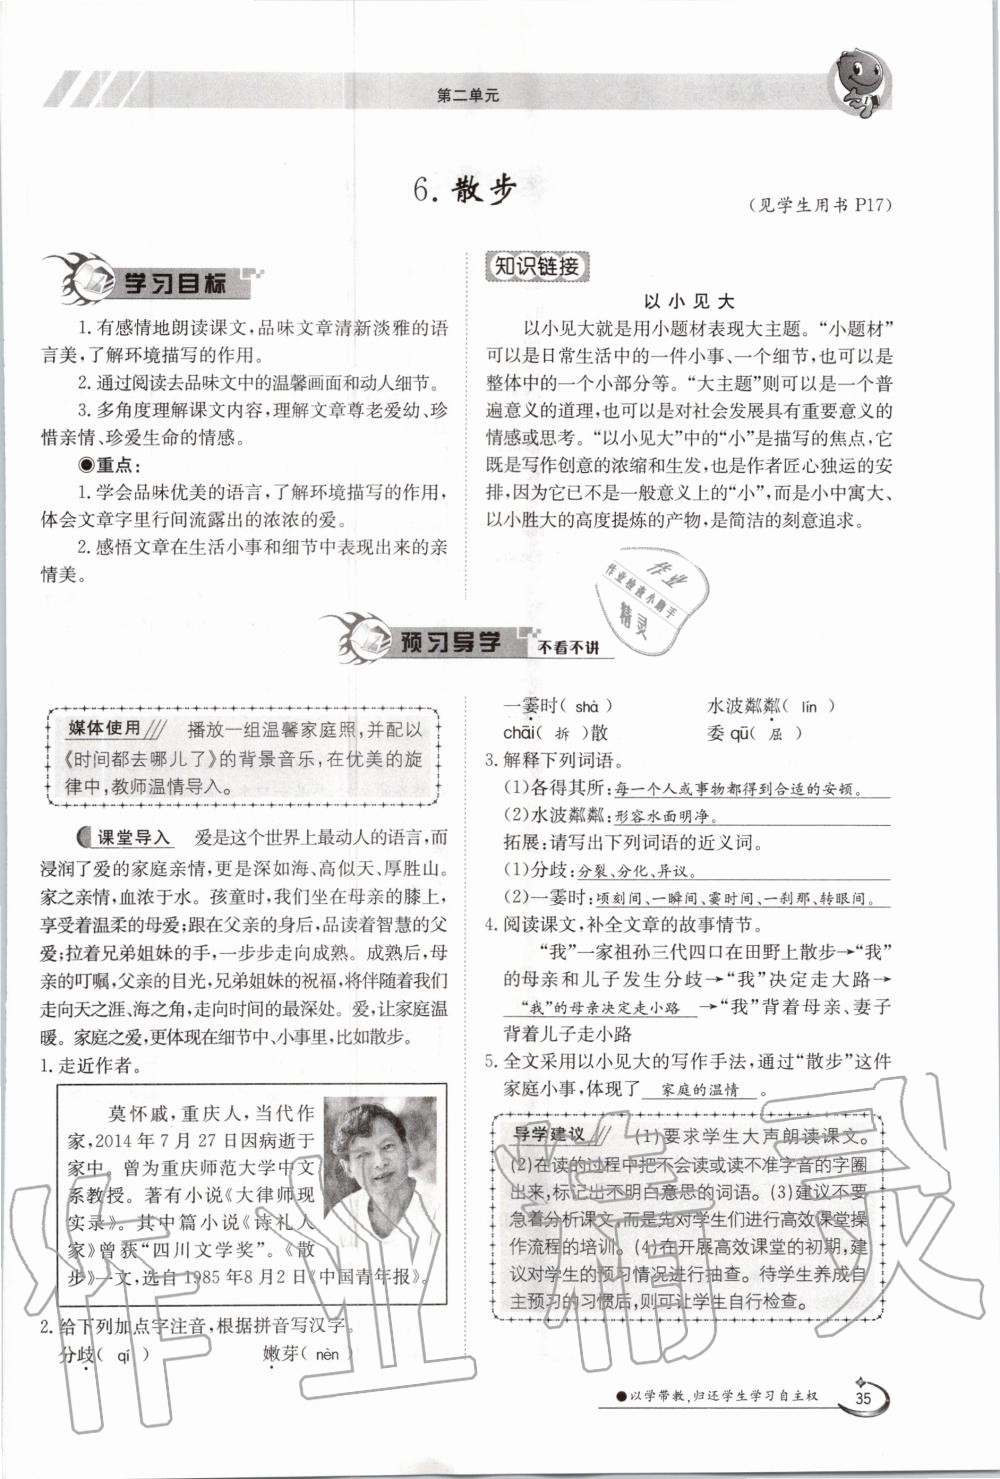 第二单元
6. 散步
(见学生用书 P17)
学习目标
1. 有感情地朗读课文,品味文章清新淡雅的语
言美,了解环境描写的作用。
2. 通过阅读去品味文中的温馨画面和动人细节。
3. 多角度理解课文内容,理解文章尊老爱幼、珍
惜亲情、珍爱生命的情感。
●重点:
1. 学会品味优美的语言,了解环境描写的作用,
体会文章字里行间流露出的浓浓的爱。
2. 感悟文章在生活小事和细节中表现出来的亲
情美。
知识链接
以小见大
以小见大就是用小题材表现大主题。“小题材”
可以是日常生活中的一件小事、一个细节,也可以是
整体中的一个小部分等。“大主题”则可以是一个普
遍意义的道理,也可以是对社会发展具有重要意义的
情感或思考。“以小见大”中的“小”是描写的焦点,它
既是写作创意的浓缩和生发,也是作者匠心独运的安
排,因为它已不是一般意义上的“小”,而是小中寓大、
以小胜大的高度提炼的产物,是简洁的刻意追求。
作业
作业检查小助手
精灵
预习导学 不看不讲
媒体使用 播放一组温馨家庭照,并配以
《时间都去哪儿了》的背景音乐,在优美的旋
律中,教师温情导入。
课堂导入 爱是这个世界上最动人的语言,而
浸润了爱的家庭亲情,更是深如海、高似天、厚胜山。
家之亲情,血浓于水。孩童时,我们坐在母亲的膝上,
享受着温柔的母爱;跟在父亲的身后,品读着智慧的父
爱;拉着兄弟姐妹的手,一步步走向成熟。成熟后,母
亲的叮嘱,父亲的目光,兄弟姐妹的祝福,将伴随着我们
走向天之涯、海之角,走向时间的最深处。爱,让家庭温
暖。家庭之爱,更体现在细节中、小事里,比如散步。
1. 走近作者。
莫怀戚,重庆人,当代作
家,2014 年 7 月 27 日因病逝于
家中。曾为重庆师范大学中文
系教授。著有小说《大律师现
实录》。其中篇小说《诗礼人
家》曾获“四川文学奖”。《散
步》一文,选自 1985 年 8 月 2 日《中国青年报》。
2. 给下列加点字注音,根据拼音写汉字。
分歧( qí ) 嫩芽( nèn )
一霎时( shà ) 水波粼粼( lín )
chāi( 拆 )散 委 qū( 屈 )
3. 解释下列词语。
(1)各得其所:每一个人或事物都得到合适的安顿。
(2)水波粼粼:形容水面明净。
拓展:请写出下列词语的近义词。
(1)分歧:分裂、分化、异议。
(2)一霎时:顷刻间、一瞬间、霎时间、一刹那、转眼间。
4. 阅读课文,补全文章的故事情节。
“我”一家祖孙三代四口在田野上散步→“我”
的母亲和儿子发生分歧→“我”决定走大路→
“我”的母亲决定走小路→“我”背着母亲、妻子
背着儿子走小路
5. 全文采用以小见大的写作手法,通过“散步”这件
家庭小事,体现了 家庭的温情 。
导学建议 (1)要求学生大声朗读课文。
(2)在读的过程中把不会读或读不准字音的字圈
出来,标记出不明白意思的词语。(3)建议不要
急着分析课文,而是先对学生们进行高效课堂操
作流程的培训。(4)在开展高效课堂的初期,建
议对学生的预习情况进行抽查。待学生养成自
主预习的习惯后,则可让学生自行检查。
●以学带教,归还学生学习自主权
35
作业精灵